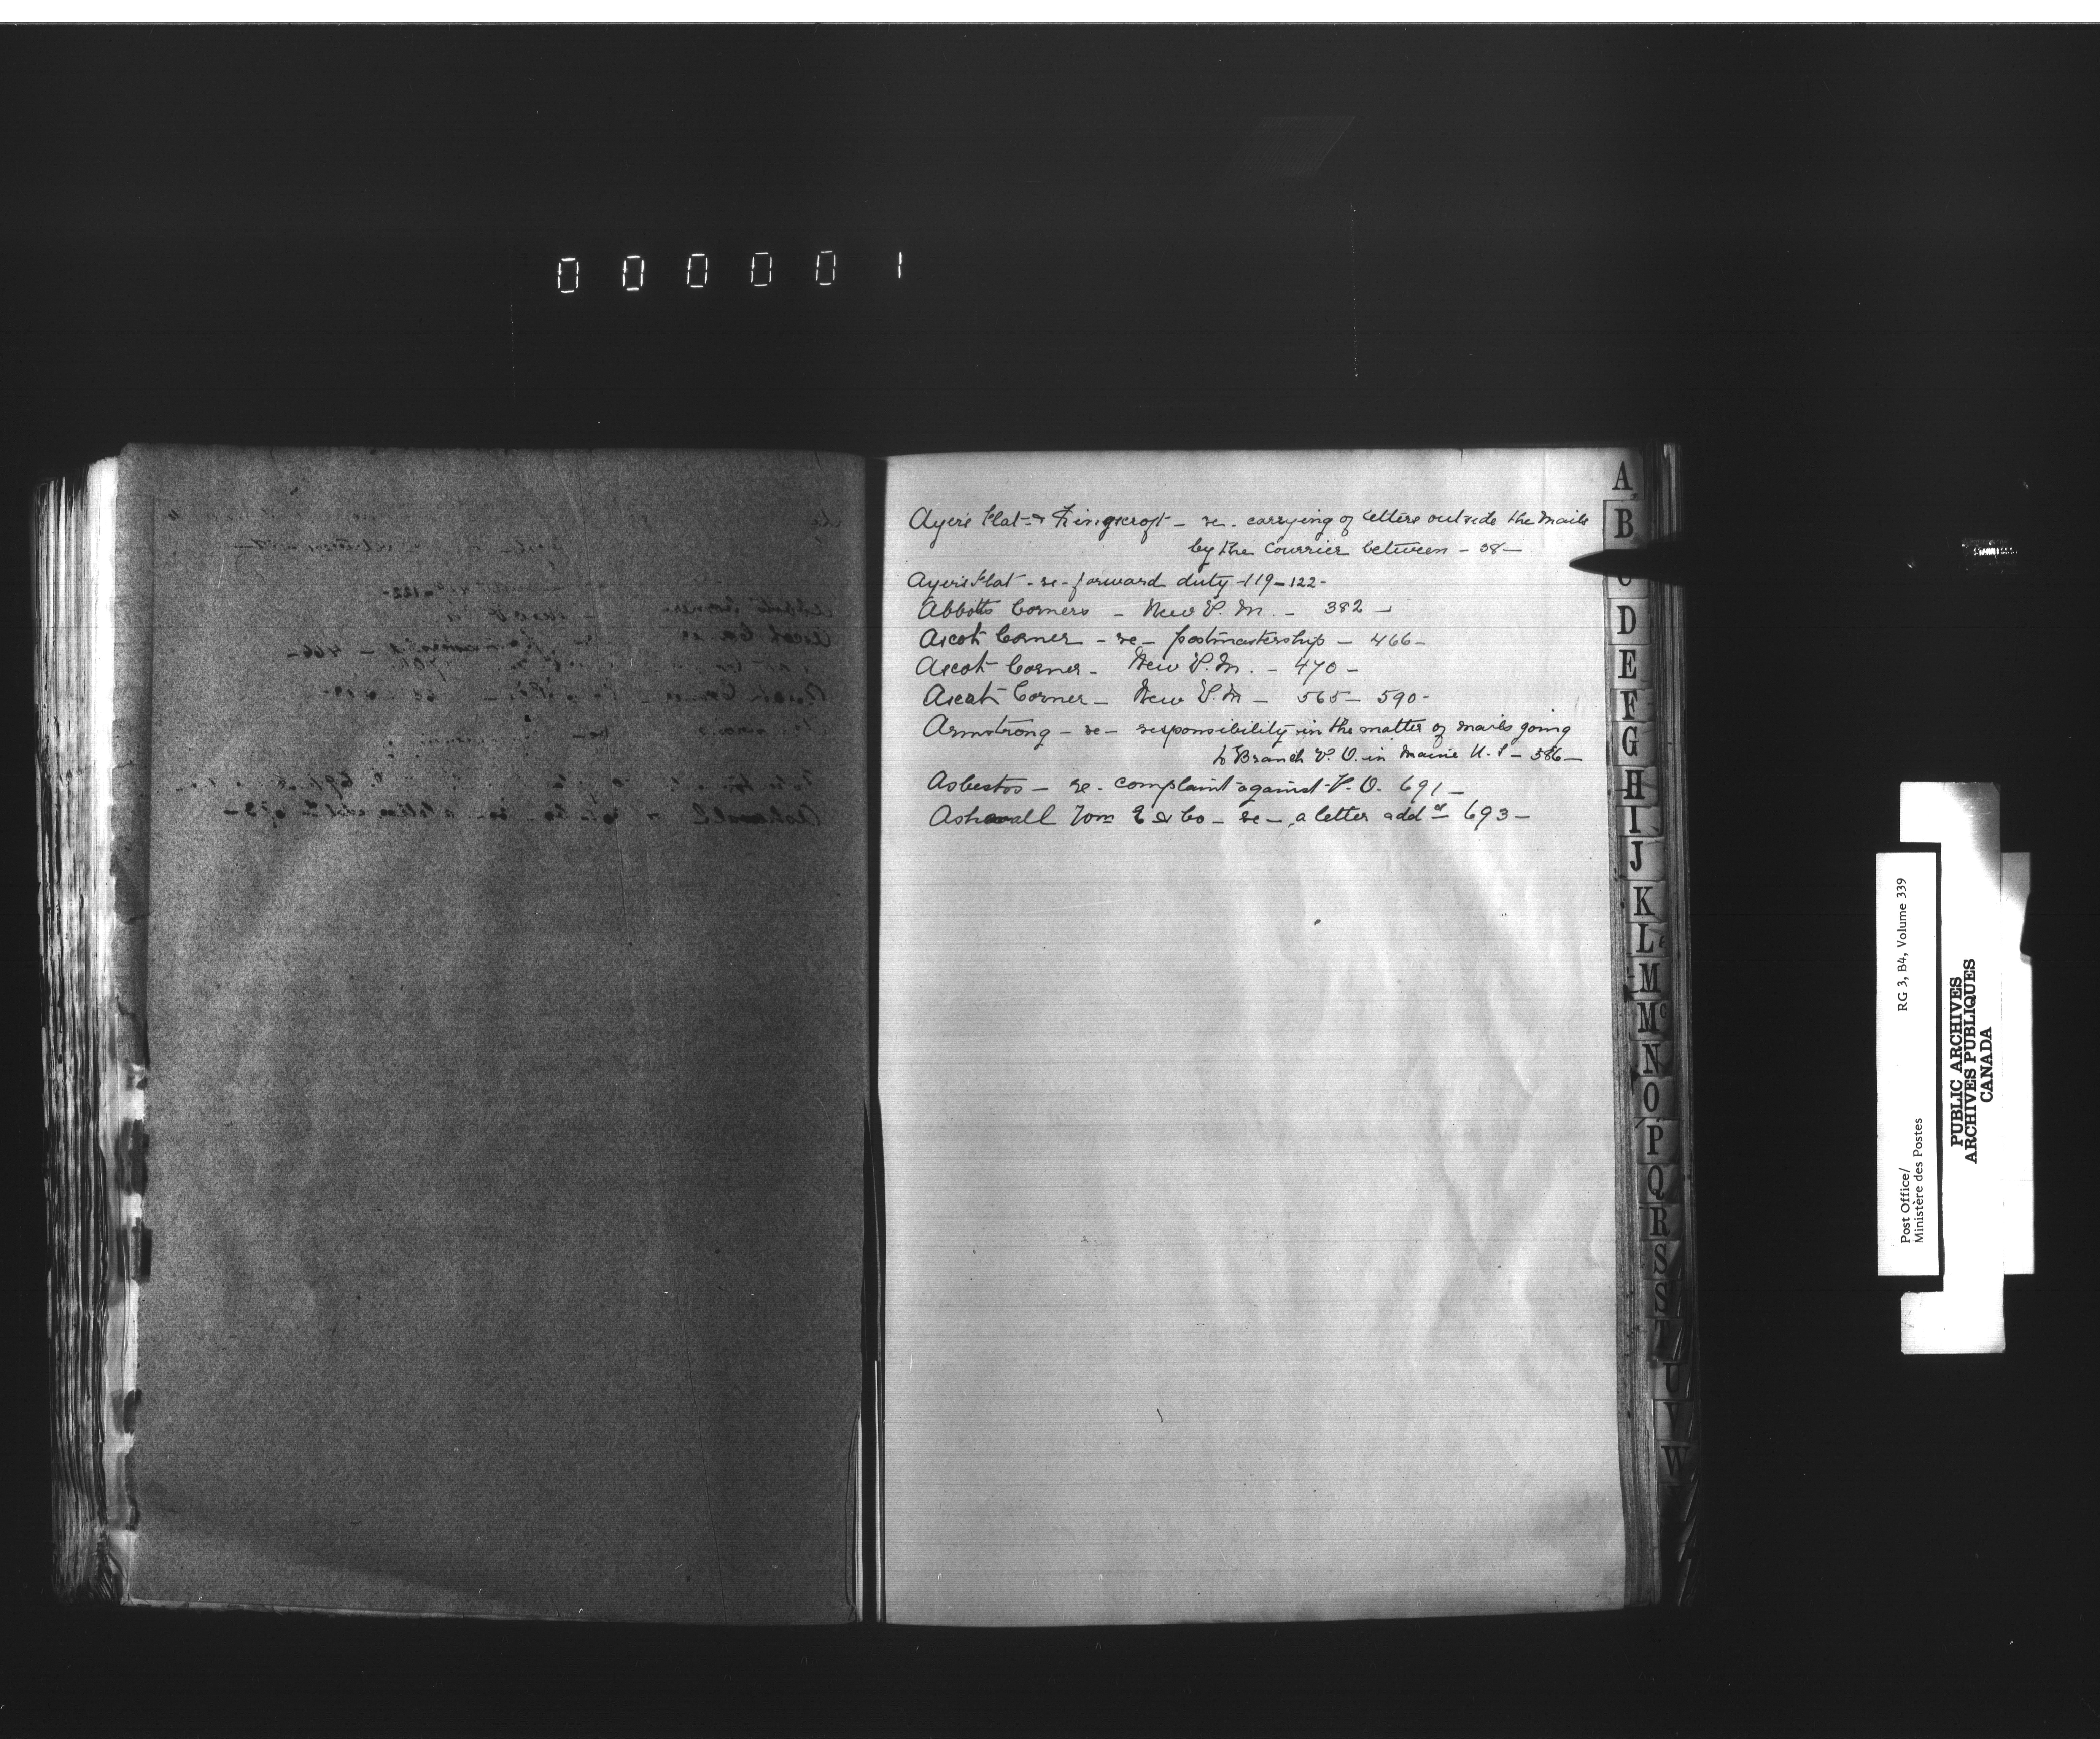 000001
Ayer's Flat & Kingscroft – re. carrying of letters outside the mails
by the Courrier between – 38 –
Ayer's Flat – re – forward duty – 119 – 122 –
Abbotts Corners – New P. M. – 382 –
Ascot Corner – re – postmastership – 466 –
Ascot Corner – New P. M. – 470 –
Ascot Corner – New P. M – 565 – 590 –
Armstrong – re – responsibility in the matter of mails going
to Branch P. O. in Maine U. S – 586 –
Asbestos – re – complaint against P. O. 691 –
Ashwall Wm E & Co – re – a letter addd – 693 –
A
B
D
E
F
G
H
I
J
K
L
M
Mc
N
O
P
Q
R
S
S
U
V
W
Post Office/
Ministère des Postes
RG 3, B4, Volume 339
PUBLIC ARCHIVES
ARCHIVES PUBLIQUES
CANADA